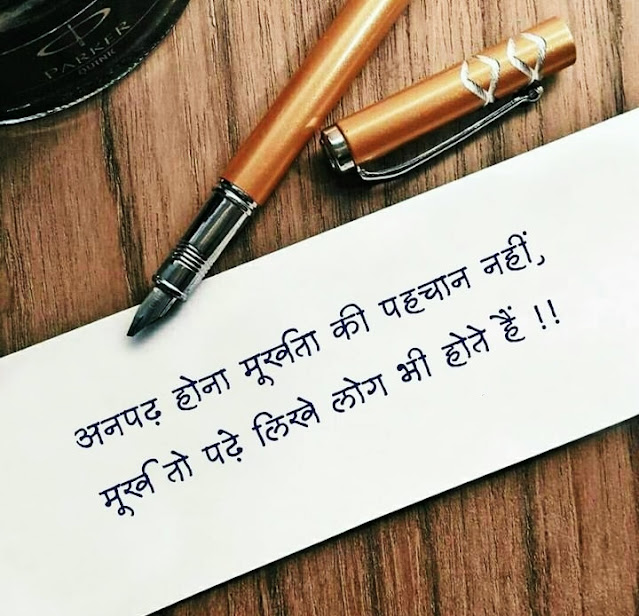 PARKER
QUINK
अनपढ़ होना मूर्खता की पहचान नहीं,
मूर्ख तो पढ़े लिखे लोग भी होते हैं !!